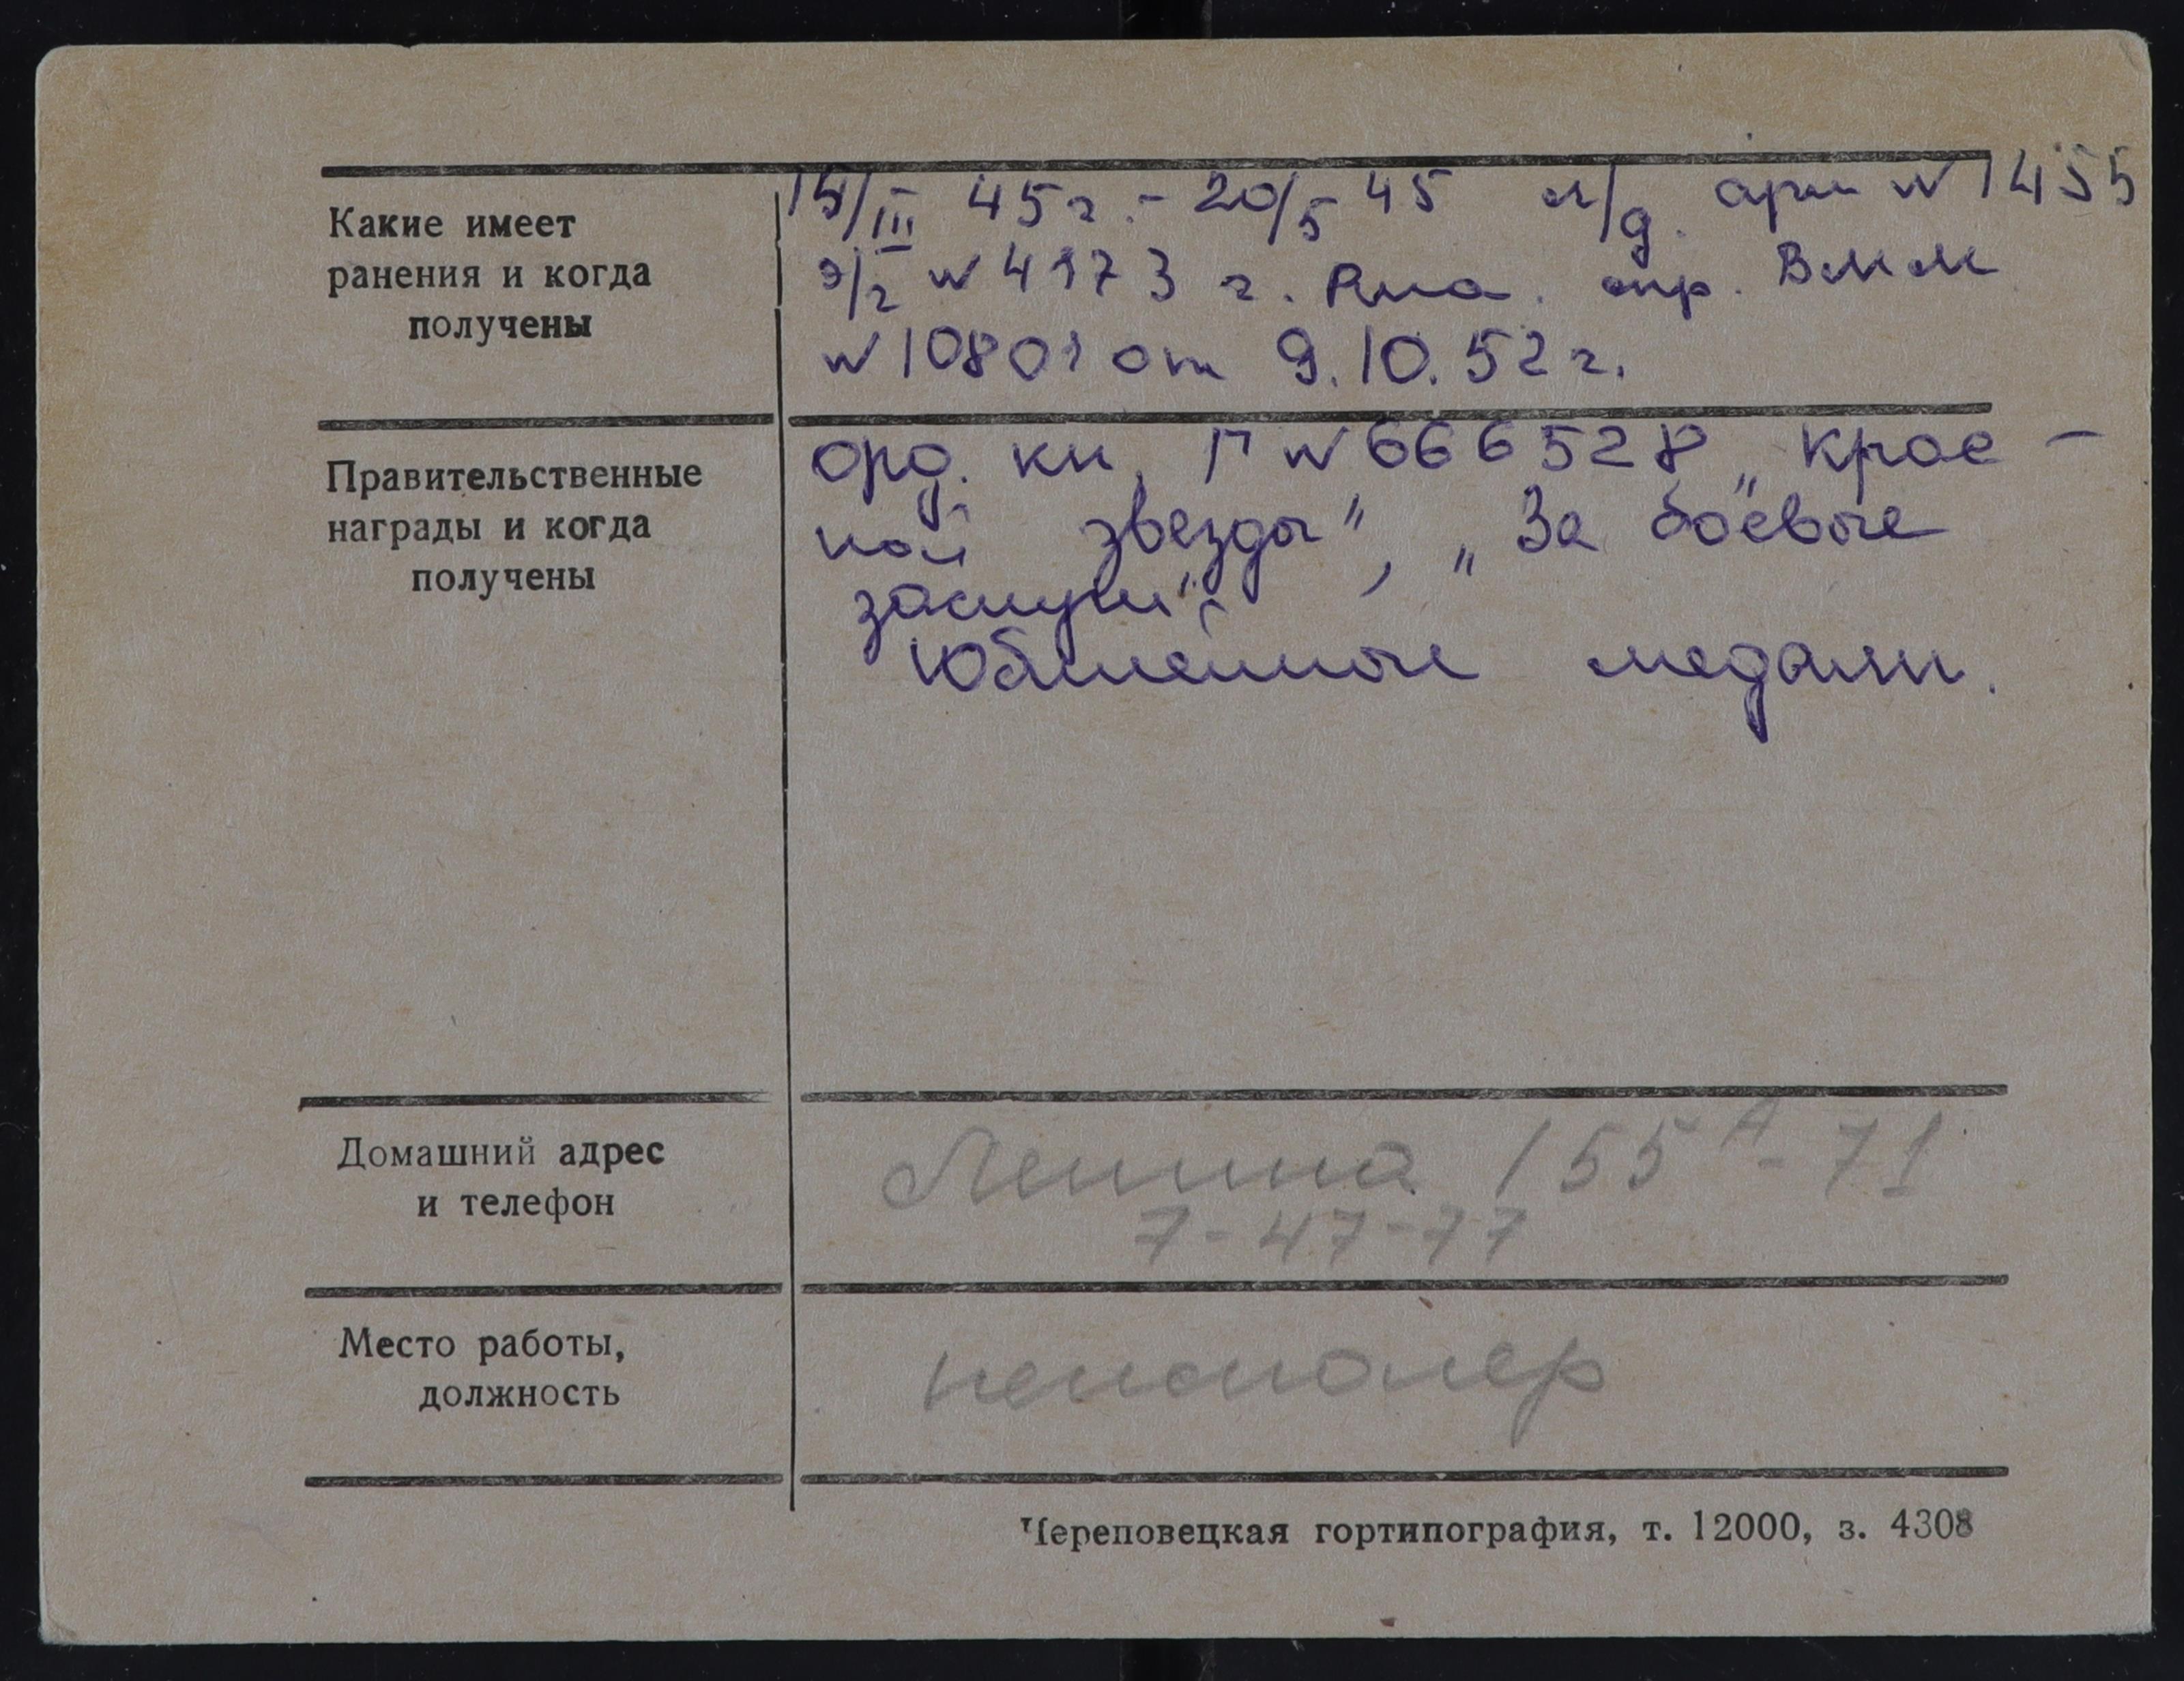 Какие имеет
ранения и когда
получены
15/III 45 г. - 20/5 45 л/д. арх N 1455
э/г N 4173 г. Рига. спр. ВММ
N 10801 от 9.10.52 г.
Правительственные
награды и когда
получены
орд. кн. Г N 666528 „Крас-
ной звезды", „За боевые
заслуги".
Юбилейные медали.
Домашний адрес
и телефон
Ленина 155А - 71
7-47-77
Место работы,
должность
пенсионер
Череповецкая гортипография, т. 12000, з. 4308